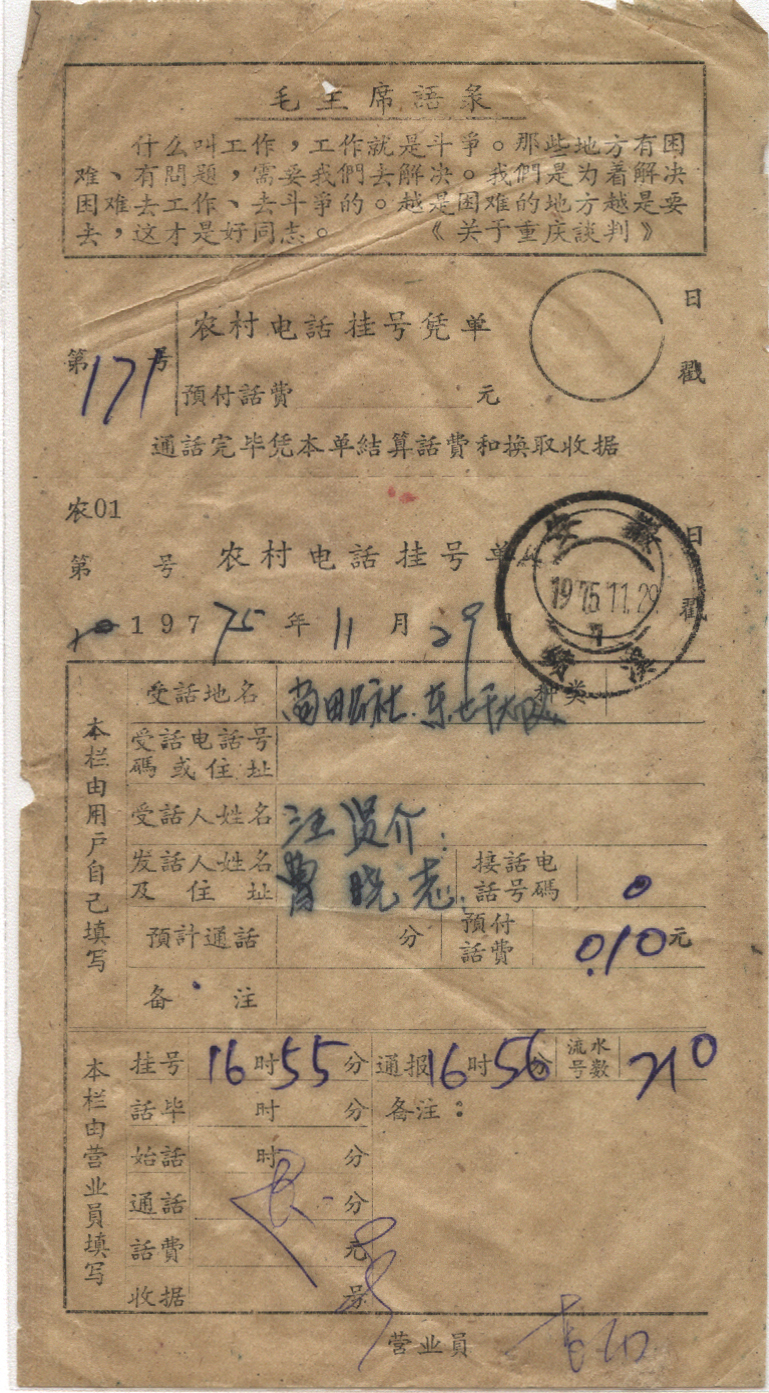 毛主席語录
什么叫工作，工作就是斗爭。那些地方有困
难、有問題，需要我們去解决。我們是为着解决
困难去工作、去斗爭的。越是困难的地方越是要
去，这才是好同志。　《关于重庆談判》
农村电話挂号凭单
日戳
第171号
預付話費 元
通話完毕凭本单結算話費和换取收据
农01
第 号 农村电話挂号单
日戳
安徽
1975.11.29
197 75年11月29日
本栏由用户自己填写
受話地名 种类
受話电話号碼或住址
受話人姓名 汪
发話人姓名及住址 曹晓志 接話电話号碼 0
預計通話 分 預付話費 0.10元
备注
本栏由营业員填写
挂号 16时55分 通报 16时56分 流水号数 210
話毕 时 分 备注：
始話 时 分
通話 分
話費 元
收据 号
营业員